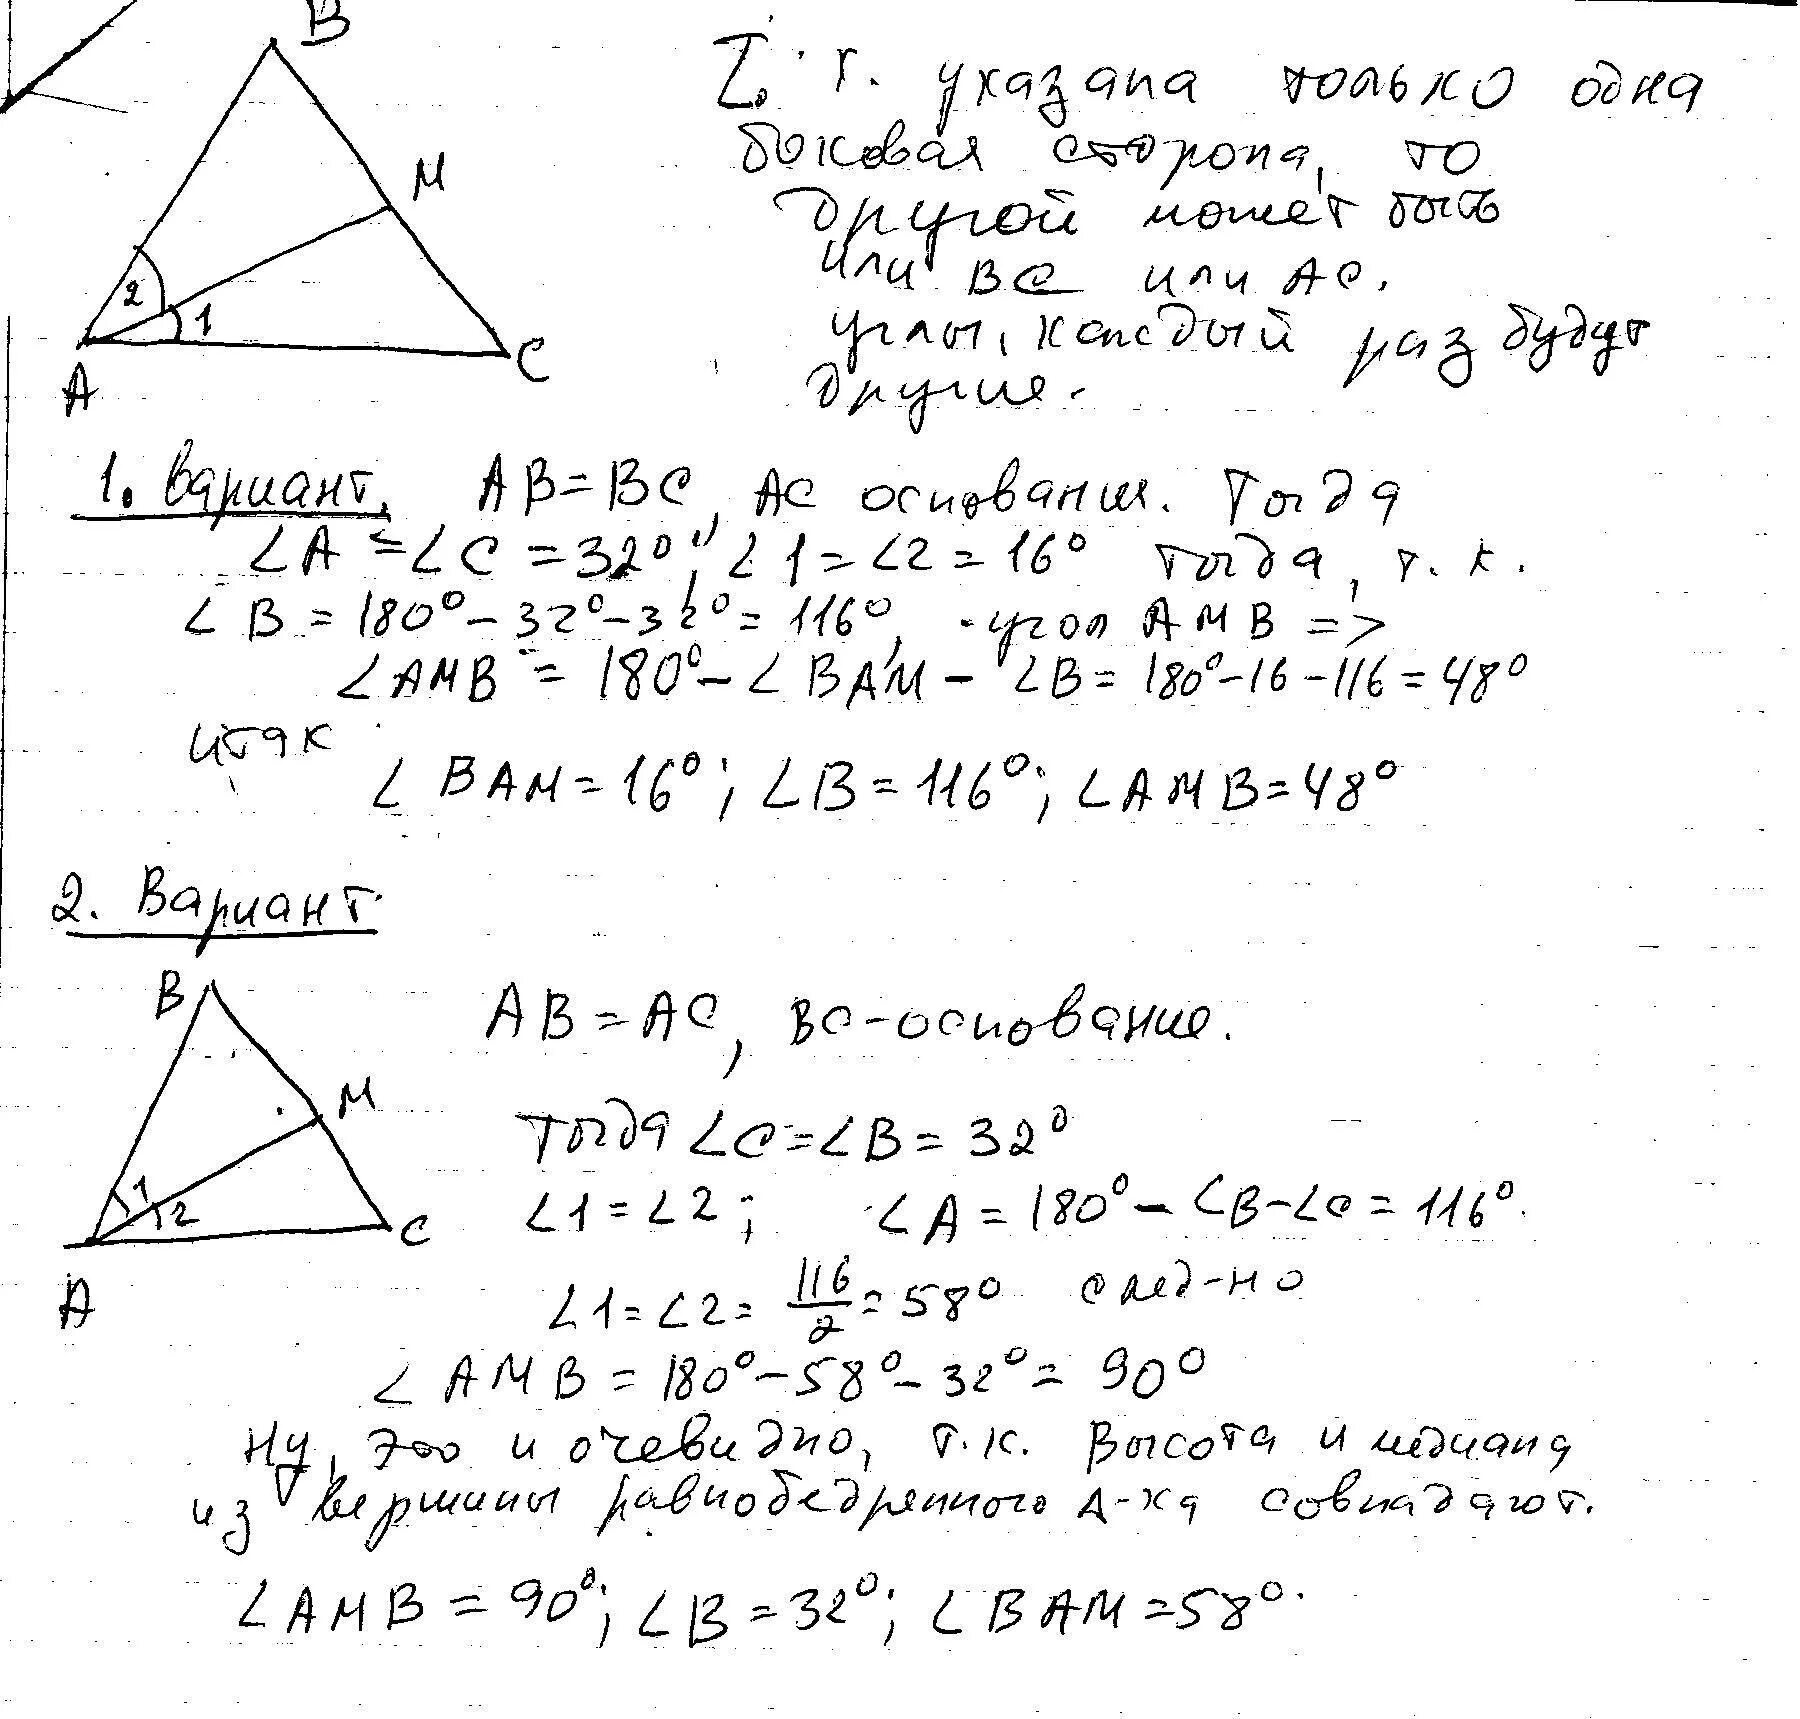 B
M
2
1
A
C
Т. к. указана только одна
боковая сторона, то
другой может быть
или BC или AC.
углы, каждый раз будут
другие.
1. Вариант. AB=BC, AC основания. Тогда
∠A=∠C=32°, ∠1=∠2=16° тогда, т. к.
∠B=180°-32°-32°=116°, угол AMB =>
∠AMB = 180°-∠BAM-∠B=180°-16-116=48°
итак
∠BAM=16°; ∠B=116°; ∠AMB=48°
2. Вариант.
B
M
1
2
C
A
AB=AC, BC-основание.
Тогда ∠C=∠B=32°
∠1=∠2; ∠A=180°-∠B-∠C=116°.
∠1=∠2=116/2=58° след-но
∠AMB=180°-58°-32°=90°
Ну, это и очевидно, т.к. Высота и медиана
из вершины равнобедренного Δ-ка совпадают.
∠AMB=90°; ∠B=32°; ∠BAM=58°.